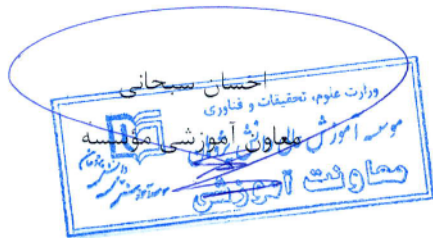 احسان سبحانی
معاون آموزشی مؤسسه
وزارت علوم، تحقیقات و فناوری
موسسه آموزش عالی
معاونت آموزشی